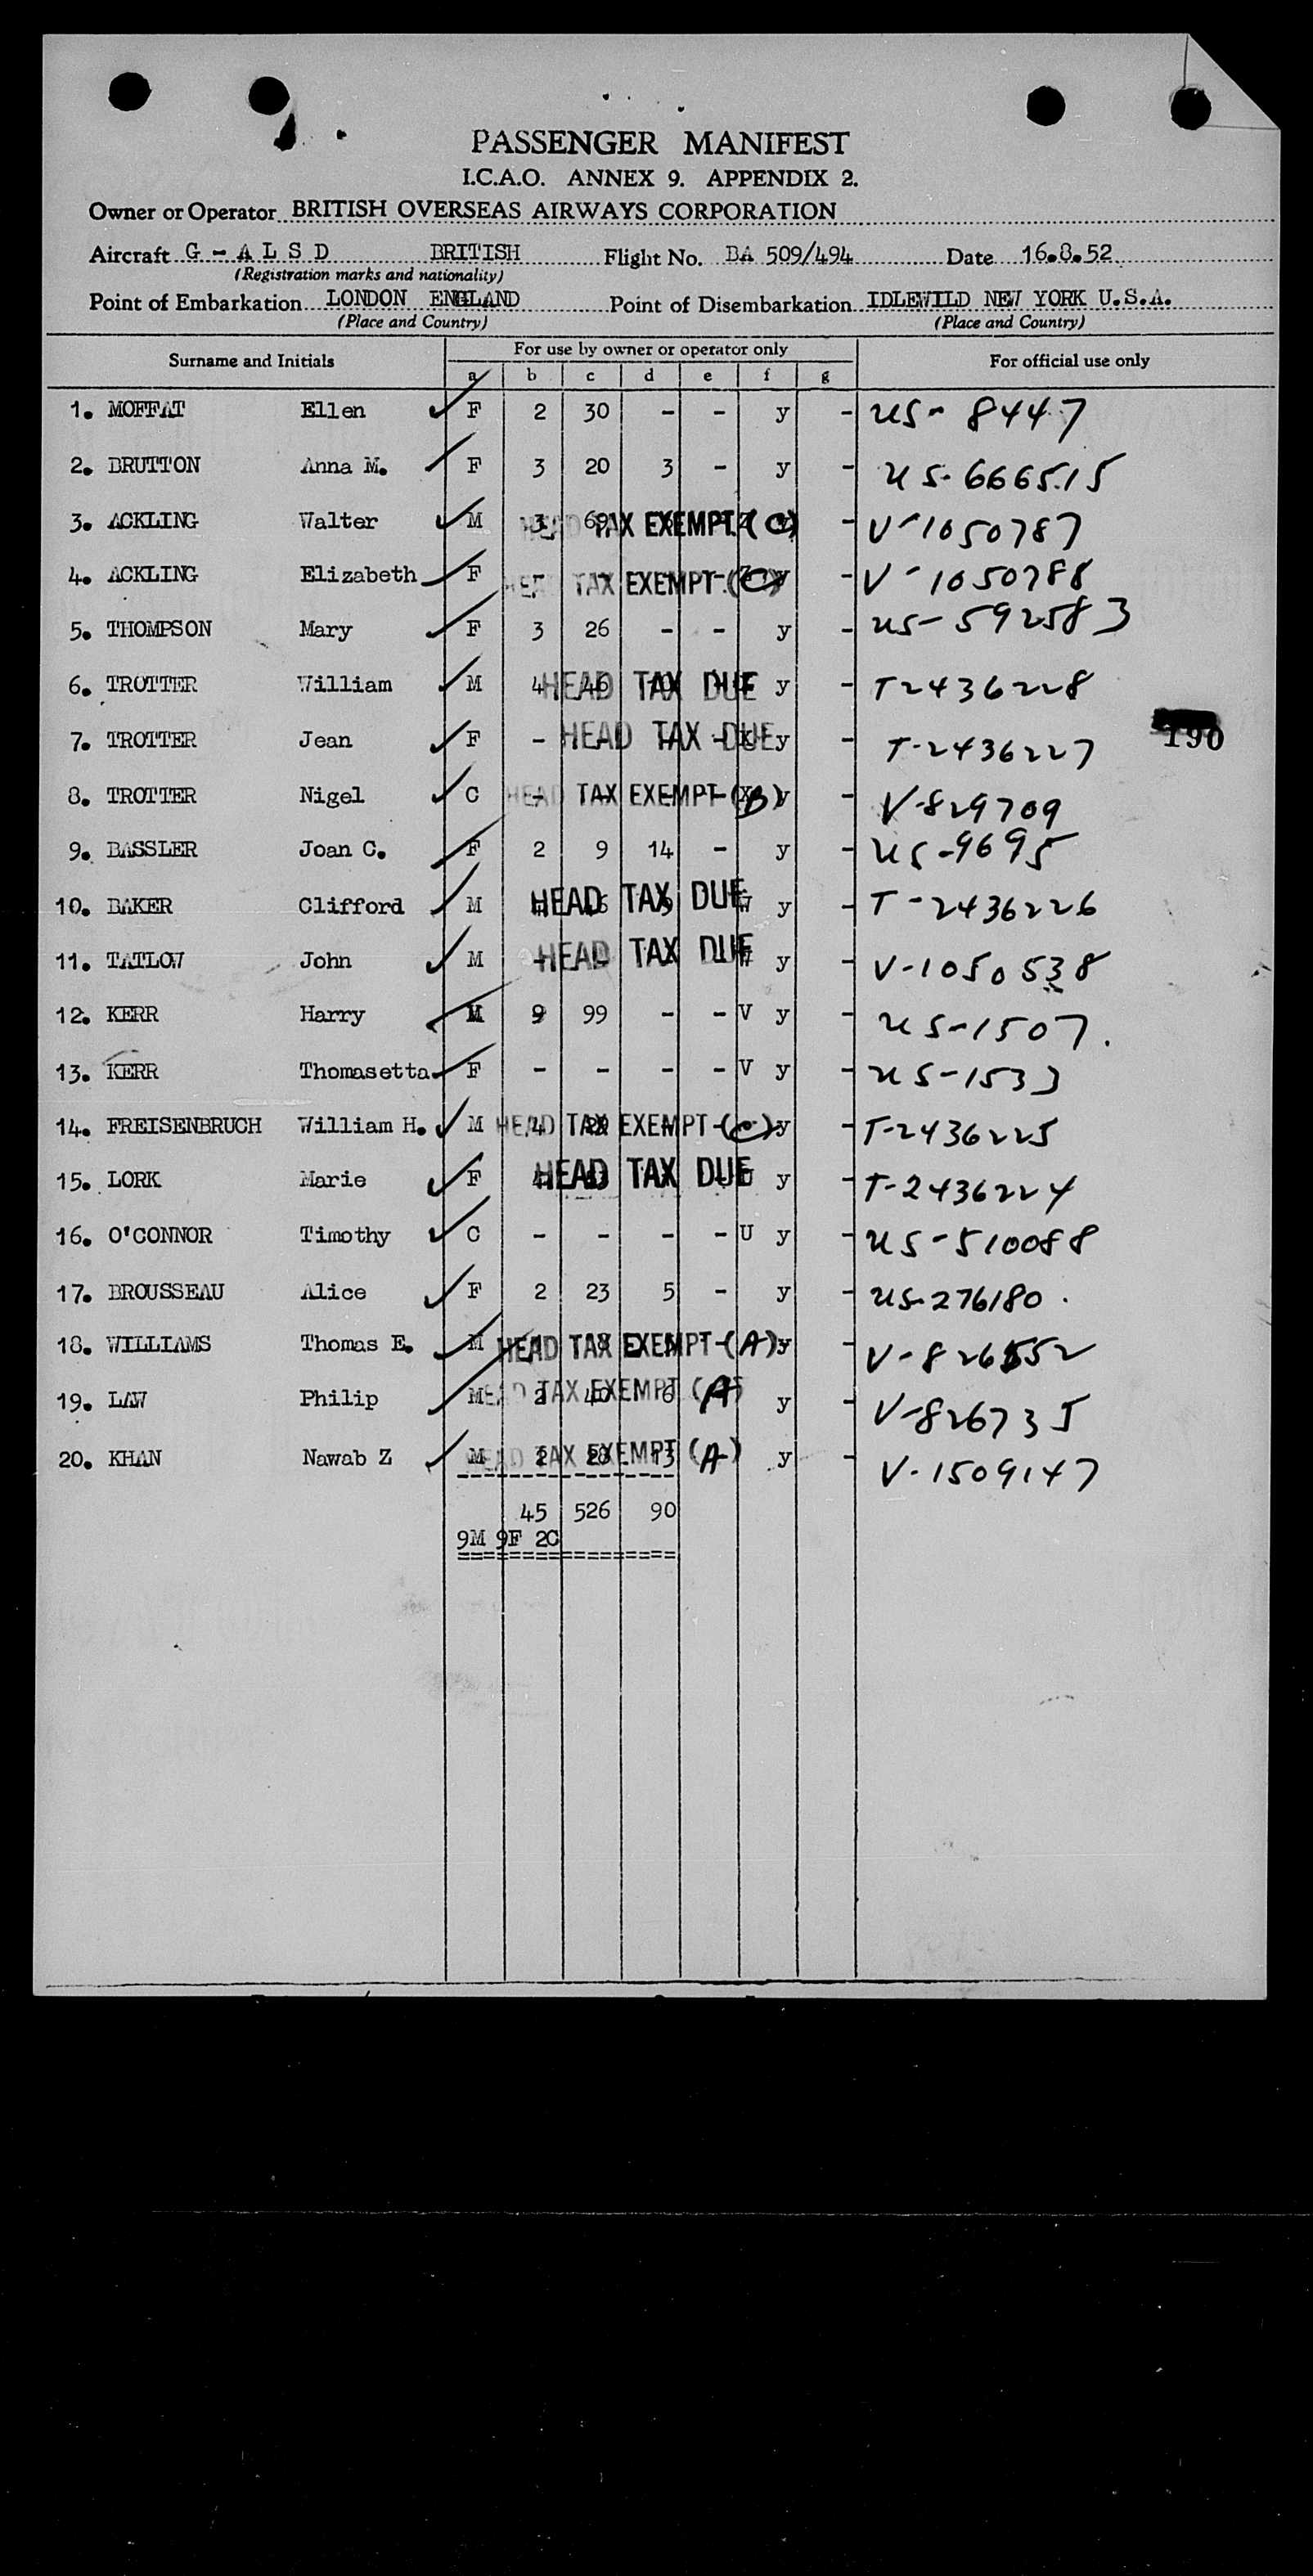 PASSENGER MANIFEST
I.C.A.O. ANNEX 9. APPENDIX 2.
Owner or Operator BRITISH OVERSEAS AIRWAYS CORPORATION
Aircraft G - A L S D BRITISH Flight No. BA 509/494 Date 16.8.52.
(Registration marks and nationality)
Point of Embarkation LONDON ENGLAND Point of Disembarkation IDLEWILD NEW YORK U.S.A.
(Place and Country) (Place and Country)
Surname and Initials For use by owner or operator only For official use only
a b c d e f g
1. MOFFAT Ellen F 2 30 - - y - US- 8447
2. BRUTTON Anna M. F 3 20 3 - y - US-666515
3. ACKLING Walter M 3 HEAD TAX EXEMPT (C) - V-1050787
4. ACKLING Elizabeth F - HEAD TAX EXEMPT (C) y - V-1050788
5. THOMPSON Mary F 3 26 - - y - US-592583
6. TROTTER William M 4 46 HEAD TAX DUE y - T2436228
7. TROTTER Jean F - - HEAD TAX DUE - X y - T-2436227
190
8. TROTTER Nigel C - - HEAD TAX EXEMPT - (B) X y - V-829709
9. BASSLER Joan C. F 2 9 14 - y - US-9695
10. BAKER Clifford M HEAD TAX DUE W y - T-2436226
11. TATLOW John M - HEAD TAX DUE W y - V-1050538
12. KERR Harry M 9 99 - - V y - US-1507.
13. KERR Thomasetta F - - - - V y - US-1533
14. FREISENBRUCH William H. M 4 HEAD TAX EXEMPT - (C) y - T-2436225
15. LORK Marie F HEAD TAX DUE U y - T-2436224
16. O'CONNOR Timothy C - - - - U y - US-510088
17. BROUSSEAU Alice F 2 23 5 - y - US-276180.
18. WILLIAMS Thomas E. M HEAD TAX EXEMPT - (A) y - V-826552
19. LAW Philip M 2 40 6 HEAD TAX EXEMPT (A) y - V-826735
20. KHAN Nawab Z M 2 20 13 HEAD TAX EXEMPT (A) y - V-1509147
45 526 90
9M 9F 2C